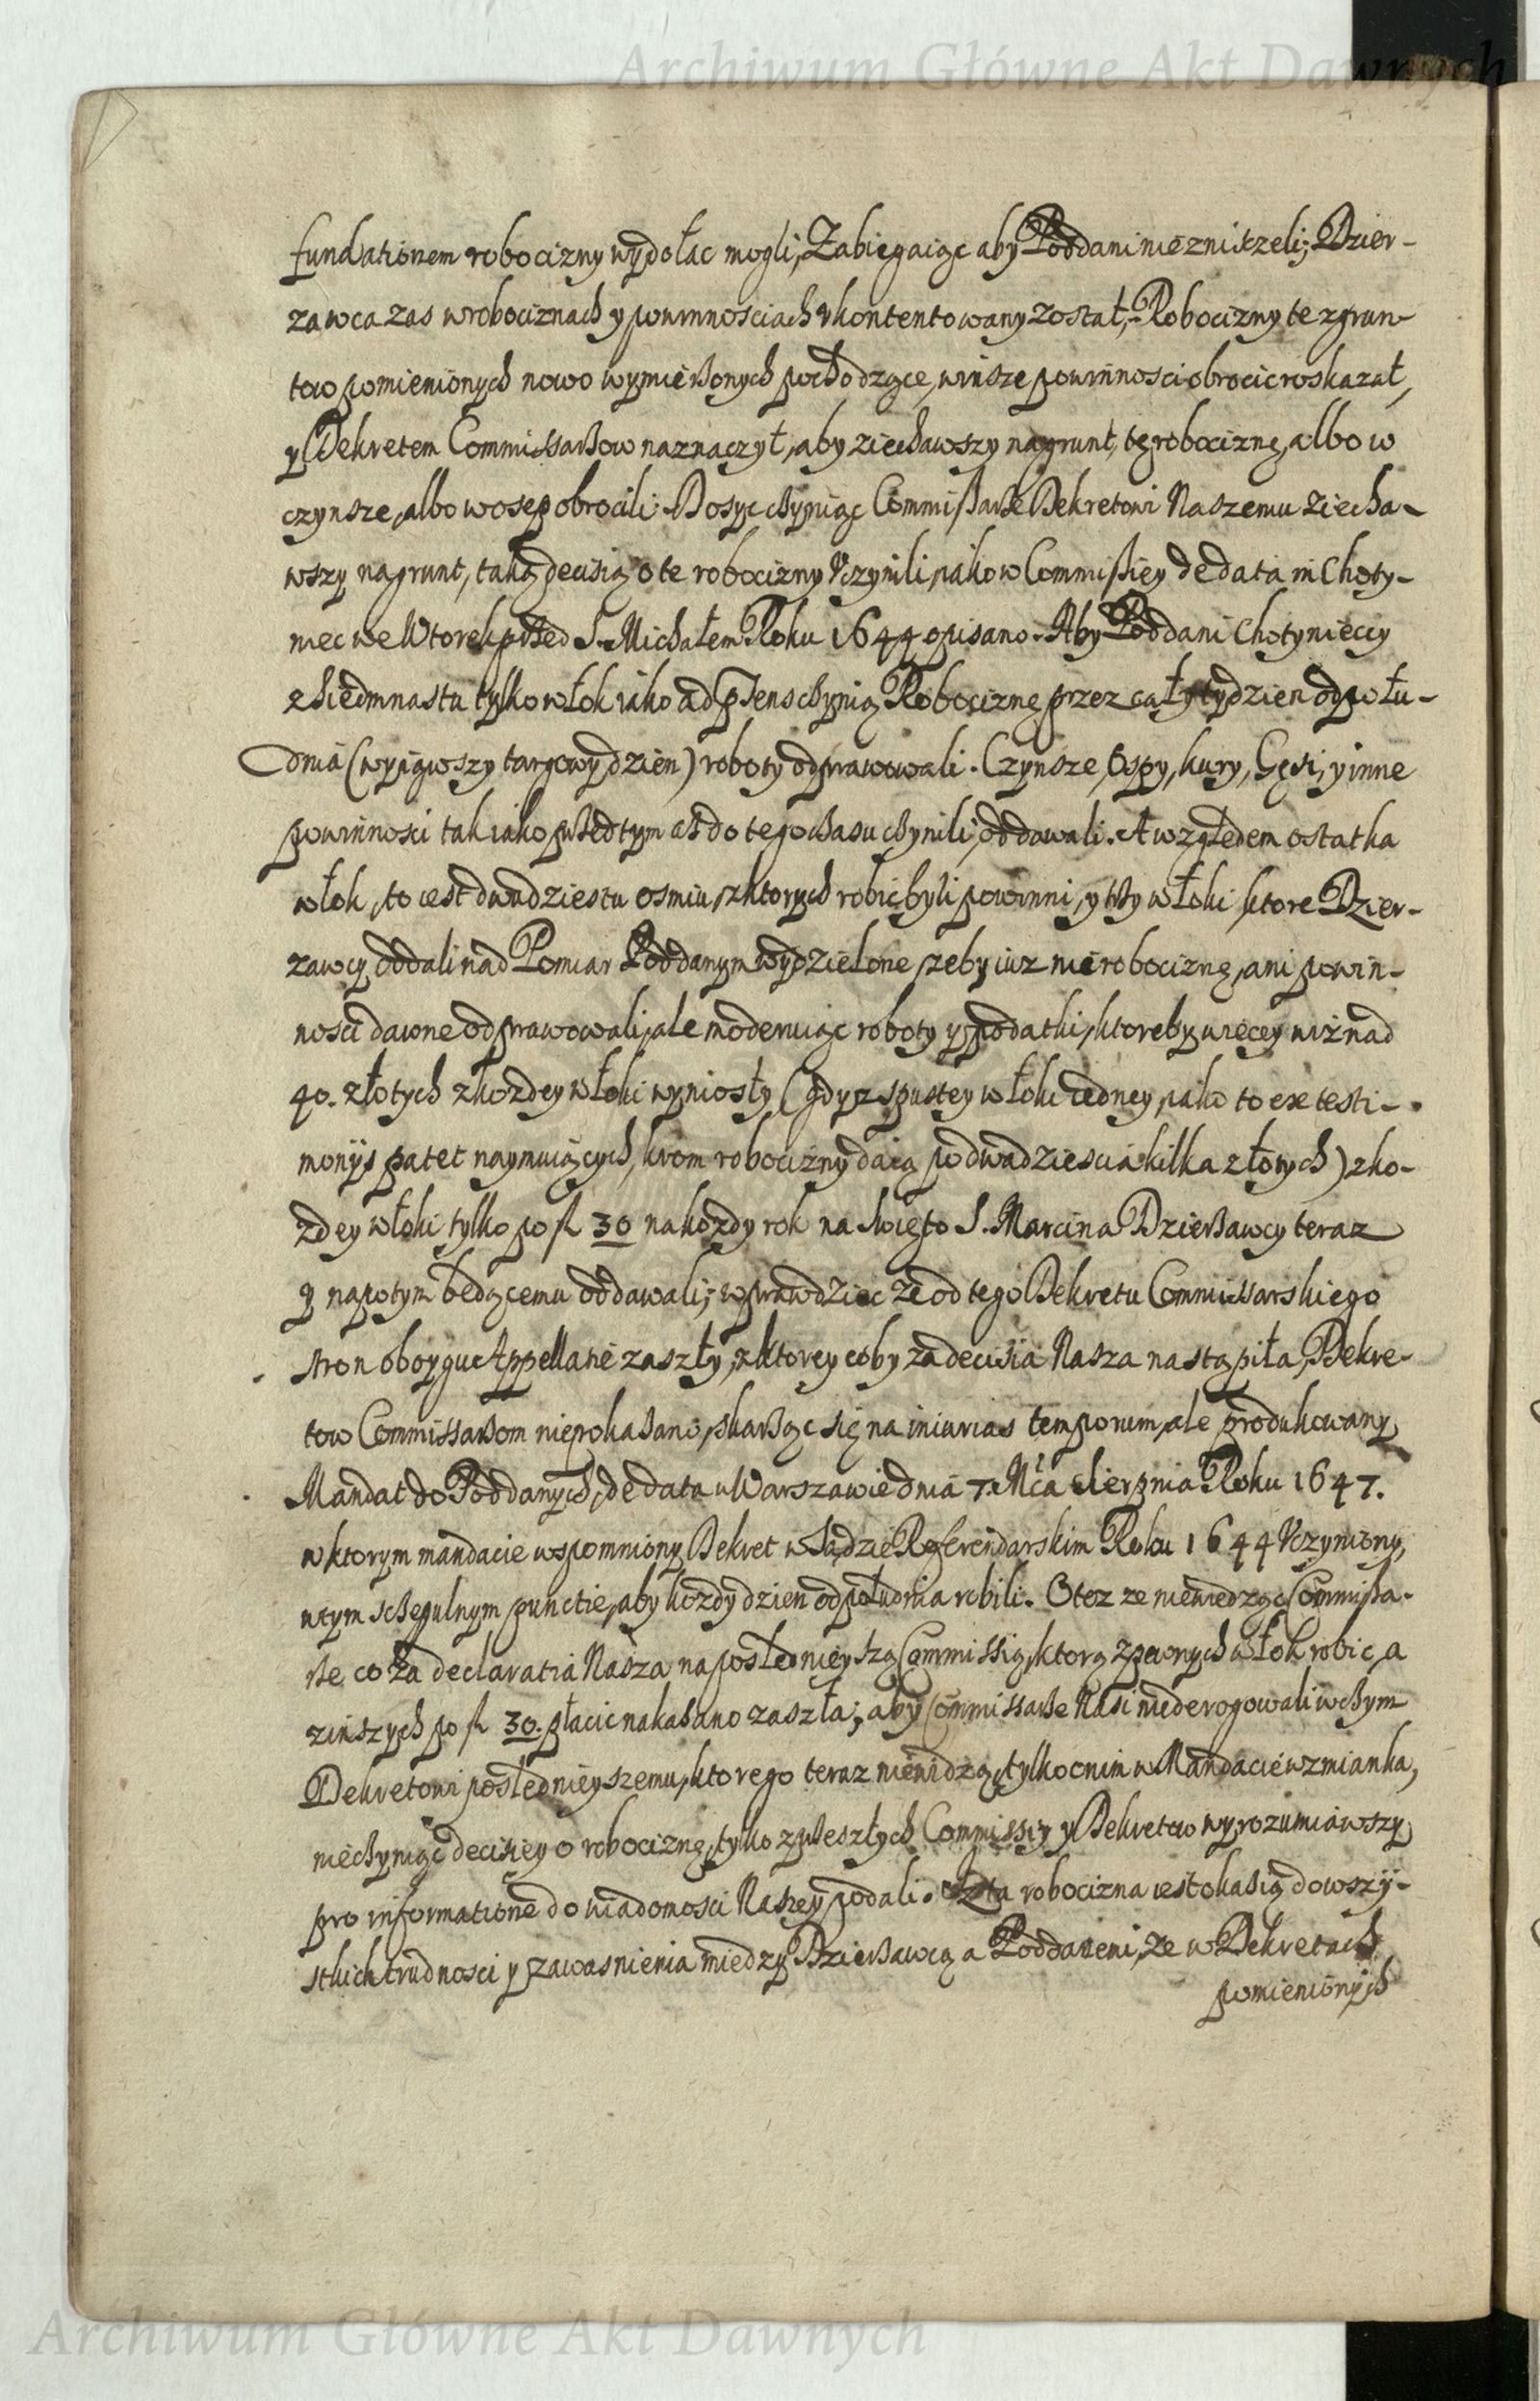 Archiwum Główne Akt Dawnych
fundationem robocizny wydołac mogli, Zabiegaiąc aby Poddani niezniszczeli; Dzier-
zawca zas w robociznach y powinnosciach vkontentowany został, Robocizny te z grun-
tow pomienionych nowo wymierzonych pochodzące, w insze powinnosci obrocic roskazał,
y Dekretem Commissarzow naznaczył, aby ziechawszy na grunt, tę robociznę, albo w
czynsze, albo w osep obrocili. Dosyc czyniąc Commissarze Dekretowi Naszemu ziecha-
wszy na grunt, taką decisią o te robocizny vczynili, iako w Commissiey de data in Choty-
niec we Wtorek przed S. Michałem Roku 1644 opisano. Aby Poddani Chotynieccy
z siedmnastu tylko włok iako ad praesens czynią Robociznę przez cały tydzien od połu-
dnia (wyiąwszy targowy dzien) roboty odprawowali. Czynsze, Ospy, kury, Gęsi, y inne
powinnosci tak iako przedtym asz do tego czasu czynili, oddawali. A względem ostatka
włok, to iest dwudziestu osmiu, z ktorych robic byli powinni, y trzy włoki ktore Dzier-
zawcy oddali nad Pomiar Poddanym wydzielone, zeby iuz nie robociznę, ani powin-
nosci dawne odprawowali, ale moderuiąc roboty y podatki, ktoreby więcey niż nad
40. złotych z kozdey włoki wyniosły (gdyz z pustey włoki iedney, iako to ex testi-
moniis patet naymuiących, krom robocizny daią po dwadziescia kilka złotych) z ko-
zdey włoki tylko po fl 30 na kozdy rok na Swięto S. Marcina Dzierzawcy teraz
y napotym będącemu oddawali; wprawdziec ze od tego Dekretu Commissarskiego
stron oboygu Appellatie zaszły, z ktorey coby za decisia Nasza nastąpiła, Dekre-
tow Commissarzom niepokazano, skarżąc się na iniurias temporum, ale produkowany
Mandat do Poddanych, de data w Warszawie dnia 7. Mca Sierpnia Roku 1647.
w ktorym mandacie wspomniony Dekret w Sądzie Referendarskim Roku 1644 Vczyniony,
w tym sczegulnym punctie, aby kozdy dzien od południa robili. Otoz ze niewiedząc Commissa-
rze co za declaratia Nasza na poslednieyszą Commissią, ktorą z pewnych włok robic, a
z inszych po fl 30. płacic nakazano zaszła; aby Commissarze Nasi niederogowali w czym
Dekretowi poslednieyszemu, ktorego teraz niewidzą, tylko o nim w Mandacie wzmianka,
nieczyniąc decisiey o robociznę, tylko z przeszłych Commissiy y Dekretow wyrozumiawszy
pro informatione do wiadomosci Naszey podali. Iz ta robocizna iest okasią do wszy-
stkich trudnosci y zawasnienia miedzy Dzierzawcą a Poddanemi, ze w Dekretach
pomienionych
Archiwum Główne Akt Dawnych